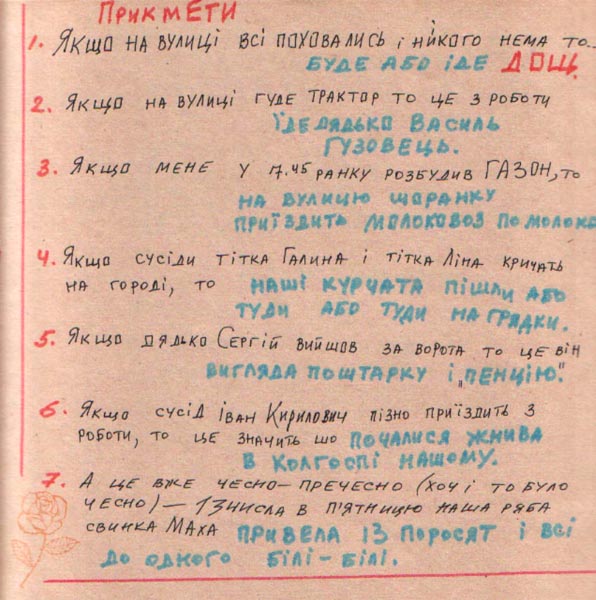 ПРИКМЕТИ
1. ЯКЩО НА ВУЛИЦІ ВСІ ПОХОВАЛИСЬ І НІКОГО НЕМА ТО...
БУДЕ АБО ІДЕ ДОЩ.
2. ЯКЩО НА ВУЛИЦІ ГУДЕ ТРАКТОР ТО ЦЕ З РОБОТИ
ЇДЕ ДЯДЬКО ВАСИЛЬ
ГУЗОВЕЦЬ.
3. ЯКЩО МЕНЕ У 7.45 РАНКУ РОЗБУДИВ ГАЗОН, ТО
НА ВУЛИЦЮ ЩОРАНКУ
ПРИЇЗДИТЬ МОЛОКОВОЗ ПО МОЛОКО
4. ЯКЩО СУСІДИ ТІТКА ГАЛИНА І ТІТКА ЛІНА КРИЧАТЬ
НА ГОРОДІ, ТО НАШІ КУРЧАТА ПІШЛИ АБО
ТУДИ АБО ТУДИ НА ГРЯДКИ.
5. ЯКЩО ДЯДЬКО СЕРГІЙ ВИЙШОВ ЗА ВОРОТА ТО ЦЕ ВІН
ВИГЛЯДА ПОШТАРКУ І „ПЕНЦІЮ".
6. ЯКЩО СУСІД ІВАН КИРИЛОВИЧ ПІЗНО ПРИЇЗДИТЬ З
РОБОТИ, ТО ЦЕ ЗНАЧИТЬ ШО ПОЧАЛИСЯ ЖНИВА
В КОЛГОСПІ НАШОМУ.
7. А ЦЕ ВЖЕ ЧЕСНО-ПРЕЧЕСНО (ХОЧ І ТО БУЛО
ЧЕСНО) – 13 ЧИСЛА В П'ЯТНИЦЮ НАША РЯБА
СВИНКА МАХА ПРИВЕЛА 13 ПОРОСЯТ І ВСІ
ДО ОДНОГО БІЛІ-БІЛІ.